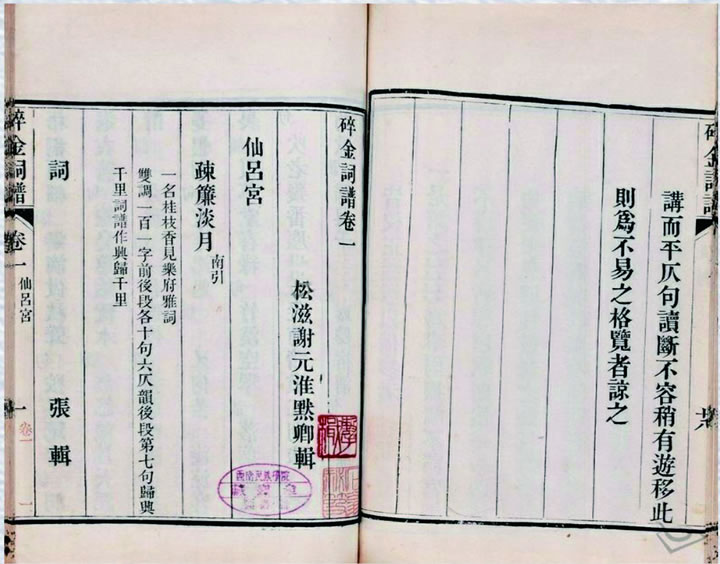 講而平仄句讀斷不容稍有遊移此
則爲不易之格覽者諒之
碎金詞譜卷一
松滋謝元淮默卿輯
仙呂宮
疎簾淡月 南引
一名桂枝香見樂府雅詞
雙調一百一字前後段各十句六仄韻後段第七句歸興
千里詞譜作興歸千里
詞 張輯
碎金詞譜 卷一 仙呂宮 一